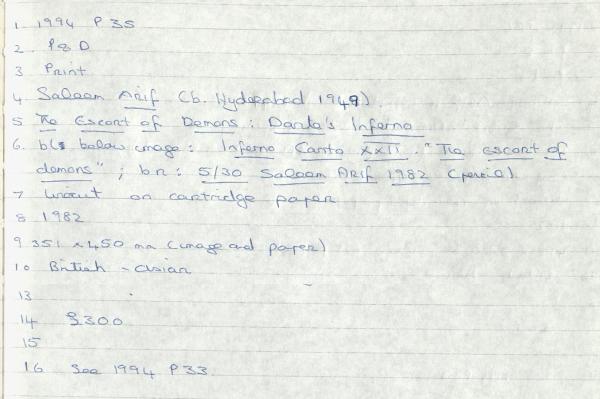 1. 1994 P35
2. P&D
3 Print
4. Saleem Arif (b. Hyderabad 1949).
5 The Escort of Demons: Dante's Inferno
6. bl: below image: Inferno Canto XXII. "The escort of
demons"; br: 5/30 Saleem Arif 1982 (pencil).
7 Linocut on cartridge paper
8 1982
9 351 x 450 mm (image and paper)
10 British - Asian
13
14 £300
15
16 See 1994 P33.